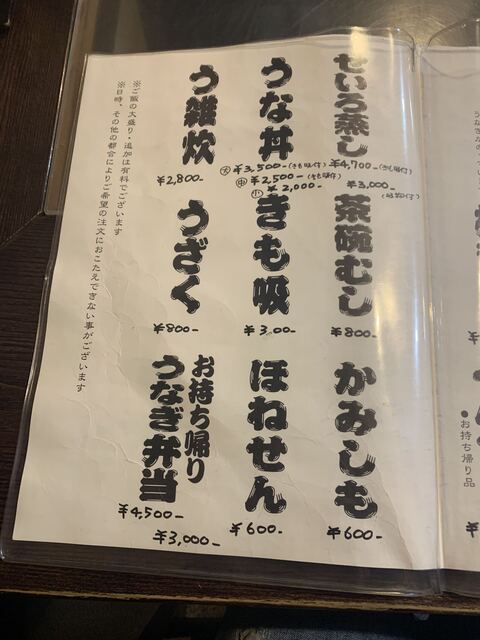 せいろ蒸し
¥4,700-(きも吸付)
¥3,000-
(きも吸付)
うな丼
大 ¥3,500-(きも吸付)
中 ¥2,500-(きも吸付)
小 ¥2,000-
う雑炊
¥2,800-
茶碗むし
¥800-
きも吸
¥300-
うざく
¥800-
かみしも
¥600-
ほねせん
¥600-
お持ち帰り
うなぎ弁当
¥4,500-
¥3,000-
※ご飯の大盛り・追加は有料でございます
※日時、その他の都合によりご希望の注文におこたえできない事がございます
●お持ち帰り品